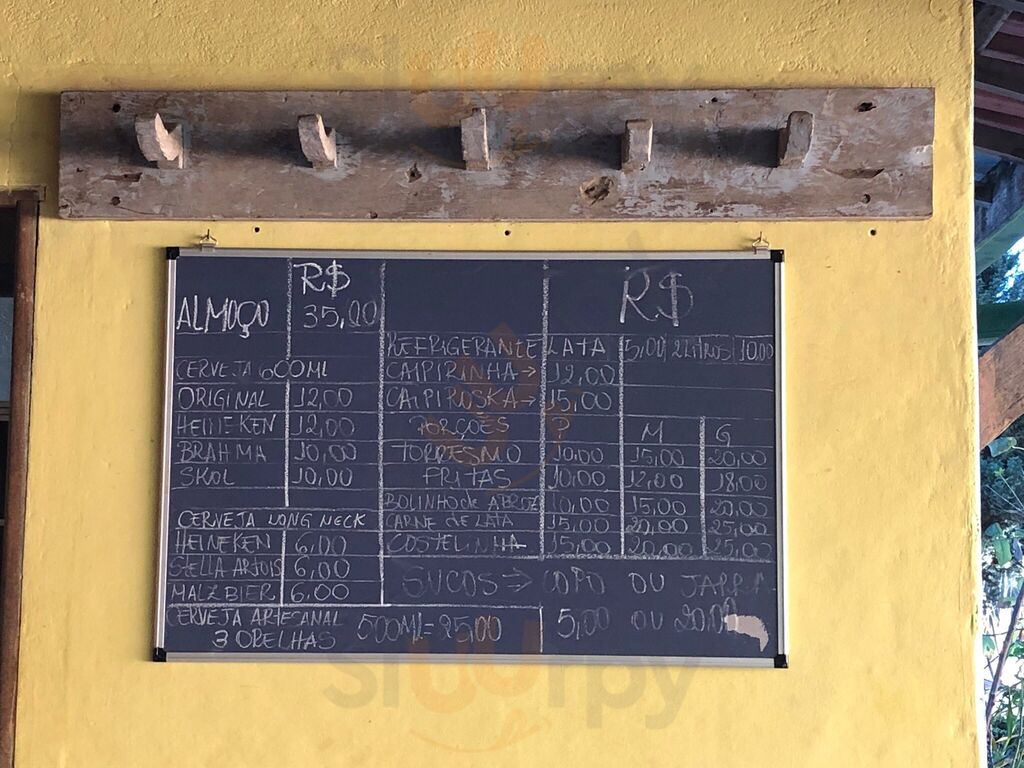 R$
ALMOÇO 35,00
CERVEJA 600ML
ORIGINAL 12,00
HEINEKEN 12,00
BRAHMA 10,00
SKOL 10,00
CERVEJA LONG NECK
HEINEKEN 6,00
STELLA ARTOIS 6,00
MALZBIER 6,00
CERVEJA ARTESANAL
3 ORELHAS 500ML = 25,00
R$
REFRIGERANTE LATA 5,00 2 LITROS 10,00
CAIPIRINHA → 12,00
CAIPIROSKA → 15,00
PORÇÕES P M G
TORRESMO 10,00 15,00 20,00
FRITAS 10,00 12,00 18,00
BOLINHO de ARROZ 10,00 15,00 20,00
CARNE de LATA 15,00 20,00 25,00
COSTELINHA 15,00 20,00 25,00
SUCOS → COPO OU JARRA
5,00 OU 20,00
sluurpy
sluurpy